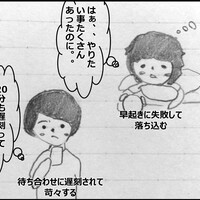 はぁ、、やりた
い事たくさん
あったのに。。
早起きに失敗して
落ち込む
20分も遅刻って
待ち合わせに遅刻されて
苛々する